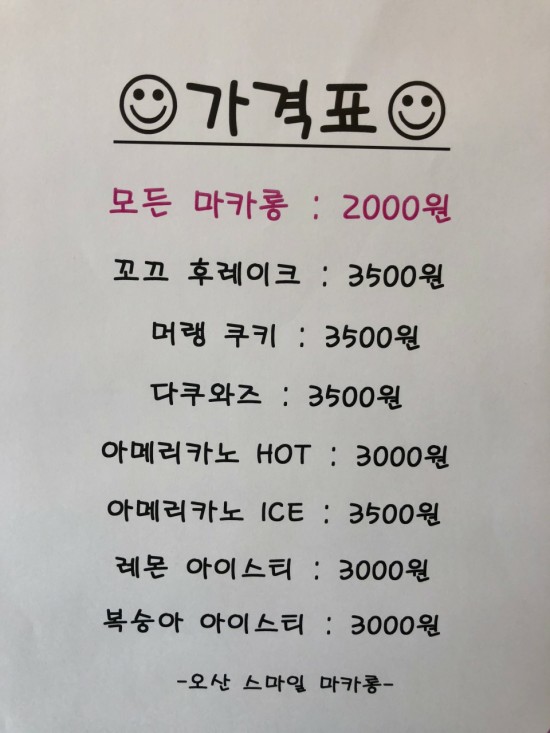 가격표
모든 마카롱 : 2000원
꼬끄 후레이크 : 3500원
머랭 쿠키 : 3500원
다쿠와즈 : 3500원
아메리카노 HOT : 3000원
아메리카노 ICE : 3500원
레몬 아이스티 : 3000원
복숭아 아이스티 : 3000원
-오산 스마일 마카롱-